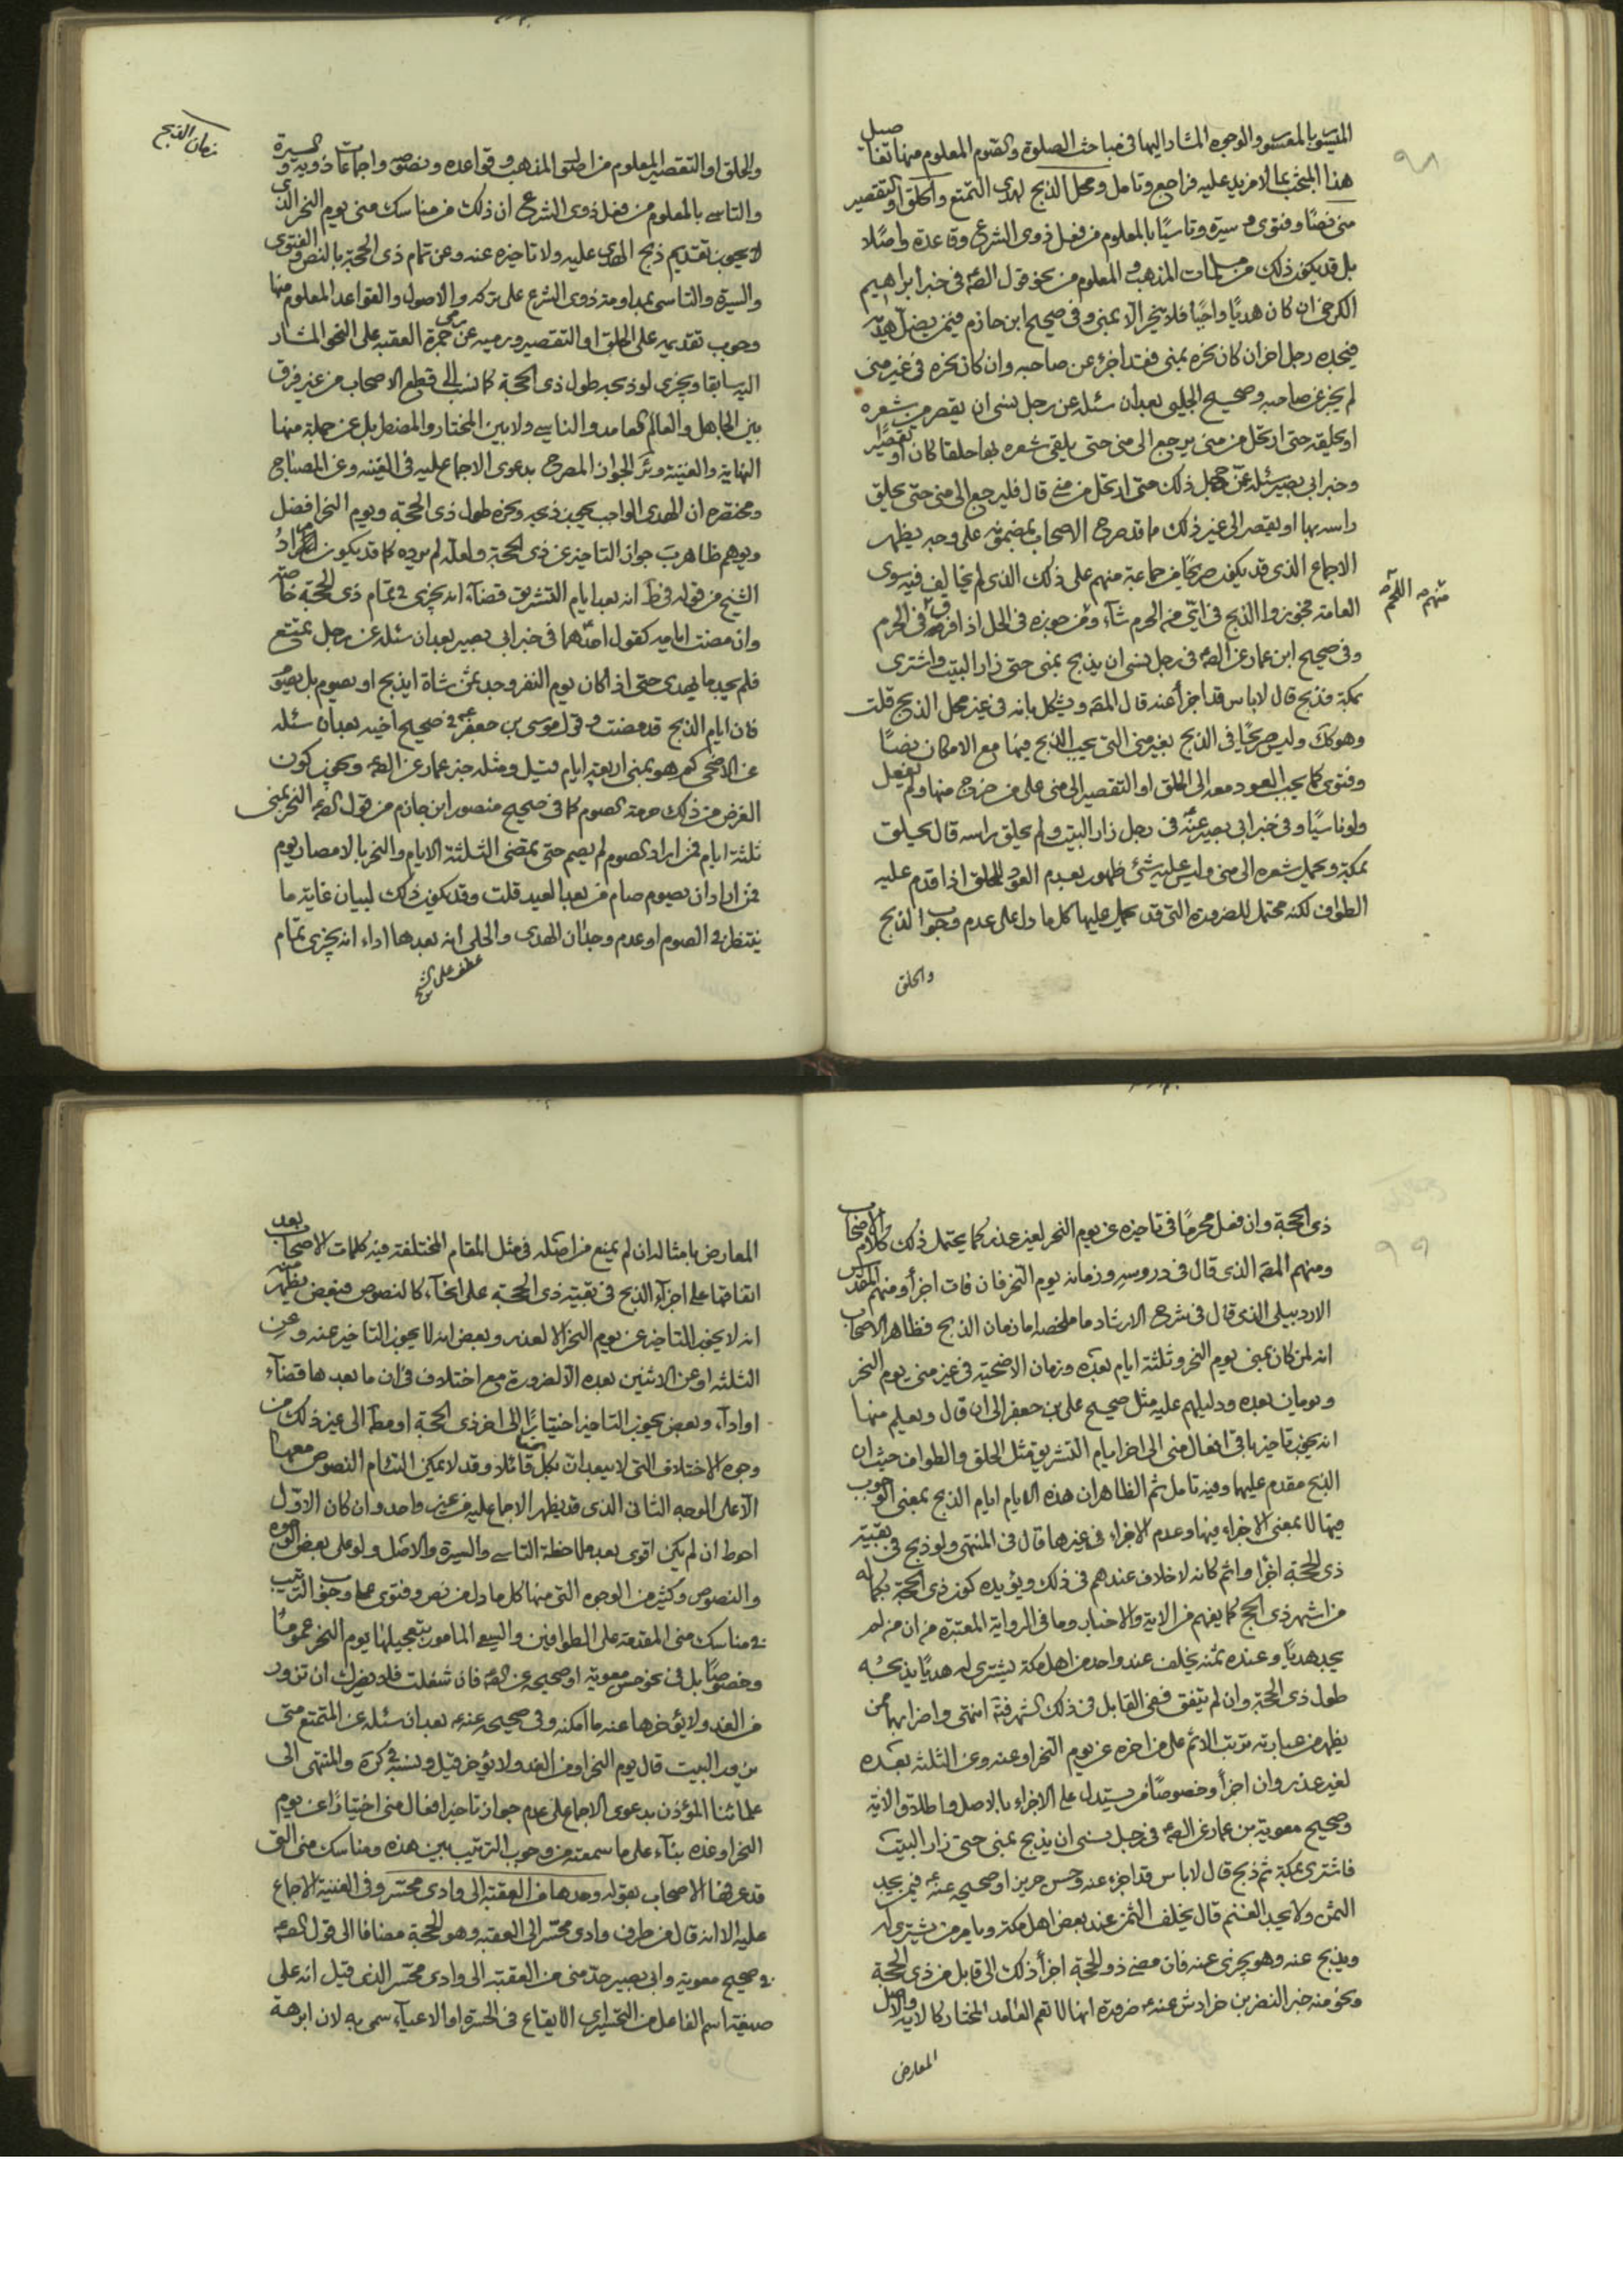 الميسور بالمعسور والوجوه المشار اليها فى مباحث الصلوة والصوم المعلوم منها تفاصيل
هذا المبحث بما لا مزيد عليه فراجع وتامل ومحل الذبح لهدى التمتع والحلق او التقصير
منى نصًا وفتوى و سيرة وتاسيًا بالمعلوم من فعل ذوى الشرع وقاعدة واصلا
بل قد يكون ذلك من مسلمات المذهب المعلوم من نحو قول الصم فى خبر ابراهيم
الكرخى ان كان هديًا واجبًا فلا ينحر الا بمنى وفى صحيح ابن حازم فيمن يضل هديه
فيجده رجل اخران كان نحره بمنى فقد اجزء عن صاحبه وان كان نحره فى غير منى
لم يجز عن صاحبه وصحيح الحلبى بعد ان سئله عن رجل نسى ان يقصر من شعره
او يحلقه حتى ارتحل من منى يرجع الى منى حتى يلقى شعره بها حلقا كان او تقصيرًا
وخبر ابى بصير سئله عن جهل ذلك حتى ارتحل من منى قال فليرجع الى منى حتى يحلق
راسه بها او يقصر الى غير ذلك ما قد صرح الاصحاب بمضمونه على وجه يظهر
الاجماع الذى قد يكون صريحًا من جماعة منهم على ذلك الذى لم يخالف فيه سوى
العامة فجوزوا الذبح فى اىّ من الحرم شاء ومن جوزه فى الحل اذا فرقه فى الحرم
منهم اللخم
وفى صحيح ابن عمار عن الصم فى رجل نسى ان يذبح بمنى حتى زار البيت واشترى
بمكة فذبح قال لاباس قد اجزأ عنه قال المصه ويشكل بانه فى غير محل الذبح قلت
وهو كك وليس صريحًا فى الذبح بغير منى التى يجب الذبح فيها مع الامكان نصًا
وفتوى كما يجب العود معه الى الحلق او التقصير الى منى على من خرج منها ولم يفعل
ولو ناسيًا وفى خبر ابى بصير عنه فى رجل زار البيت ولم يحلق راسه قال يحلق
بمكة ويحمل شعره الى منى وليس عليه شئ ظهور بعدم العود للحلق اذا قدم عليه
الطواف لكنه محتمل للضرورة التى قد يحمل عليها كل ما دل على عدم وجوب الذبح
والحلق
زمان الذبح
والحلق او التقصير المعلوم من اطلاق المذهب وقواعده ونصوصه واجماعات ذويه والسيرة
والتاسى بالمعلوم من فعل ذوى الشرع ان ذلك من مناسك منى يوم النحر الذى
لا يجوز تقديم ذبح الهدى عليه ولا تاخيره عنه وعن تمام ذى الحجة بالنص والفتوى
والسيرة والتاسى بمداومة ذوى الشرع على تركه والاصول والقواعد المعلوم منها
وجوب تقديمه على الحلق او التقصير وترميه عن رمى جمرة العقبة على النحو المشار
اليه سابقا ويجزى لو ذبحه طول ذى الحجة كما نسب الى قطع الاصحاب من غير فرق
بين الجاهل والعالم العامد والناسى ولا بين المختار والمضطر بل عن جملة منها
النهاية والغنية وئر الجواز المصرح بدعوى الاجماع عليه فى الغنيه وعن المصباح
ومختصره ان الهدى الواجب يجوز ذبحه ونحره طول ذى الحجة ويوم النحر افضل
ويوهم ظاهر ب جواز التاخير عن ذى الحجة ولعله لم يرده كما قد يكون هو مراد
الشيخ من قوله فى ط انه بعد ايام التشريق قضاء انه يجزى فى تمام ذى الحجة خاصة
وان مضت ايامه كقول احدهما فى خبر ابى بصير بعد ان سئله عن رجل يتمتع
فلم يجد ما يهدى حتى اذا كان يوم النفر وجد ثمن شاة ايذبح او يصوم بل يصوم
فان ايام الذبح قد مضت وقول موسى بن جعفر فى صحيح اخيه بعد ان سئله
عن الاضحى كم هو بمنى اربعة ايام قيل ومثله خبر عمار عن الصم ويجوز كون
الغرض من ذلك حرمة الصوم كما فى صحيح منصور ابن حازم من قول الصم النحر بمنى
ثلثة ايام فمن اراد الصوم لم يصم حتى تمضى الثلثة الايام والنحر بالامصار يوم
فمن اراد ان يصوم صام من بعد العيد قلت وقد يكون ذلك لبيان غاية ما
ينتظر فى الصوم او عدم وجدان الهدى والحلى انه بعدها اداء انه يجزى تمام
عطف على الشيخ
ذى الحجة وان فعل محرمًا فى تاخيره عن يوم النحر لغير عذر كما يحتمل ذلك كلام الاصحاب
ومنهم المصه الذى قال فى دروسه وزمانه يوم النحر فان فات اجزأ ومنهم المقدس
الاردبيلى الذى قال فى شرح الارشاد ما ملخصه اما زمان الذبح فظاهر الاصحاب
انه لمن كان بمنى يوم النحر وثلثة ايام بعده وزمان الاضحية فى غير منى يوم النحر
ويومان بعده ودليلهم عليه مثل صحيح على بن جعفر الى ان قال ويعلم منها
انه يجوز تاخير باقى افعال منى الى اخر ايام التشريق مثل الحلق والطواف حيث ان
الذبح مقدم عليها وفيه تامل ثم الظاهر ان هذه الايام ايام الذبح بمعنى الوجوب
فيها لا بمعنى الاجزاء فيها وعدم الاجزاء فى غيرها قال فى المنتهى ولو ذبح فى بقية
ذى الحجة اجزأ واثم كانه لا خلاف عندهم فى ذلك ويؤيده كون ذى الحجة بكماله
من اشهر ذى الحج كما يفهم من الاية والاخبار وما فى الرواية المعتبرة من ان من لم
يجد هديًا وعنده ثمنه يخلف عند واحد من اهل مكة يشترى له هديًا يذبحه
طول ذى الحجة وان لم يتفق ففى القابل فى ذلك الشهر فتة انتهى واضرابها ممن
يظهر من عبارته ترتب الاثم على من اخره عن يوم النحر او عنه وعن الثلثة بعده
لغير عذر وان اجزأ وخصوصًا من يستدل على الاجزاء بالاصل واطلاق الاية
وصحيح معوية بن عمار عن الصم فى رجل نسى ان يذبح بمنى حتى زار البيت
فاشترى بمكة ثم ذبح قال لاباس قد اجزء عنه وحسن حريز او صحيحه عنه فيمن يجد
الثمن ولا يجد الغنم قال يخلف الثمن عند بعض اهل مكة ويامر من يشترى له
ويذبح عنه وهو يجزى عنه فان مضى ذو الحجة اجزأ ذلك الى قابل من ذى الحجة
ونحو منه خبر النضر بن خرادش عنه ضرورة انها لا تعم العامد المختار كالاية والاصل
المعارض
المعارض بامثاله ان لم يمنع من اصله فى مثل المقام المختلفة فيه كلمات الاصحاب بعد
اتفاقها على اجزاء الذبح فى بقية ذى الحجة على انحاء كالنصوص فبعض يظهر منه
انه لا يجوز التاخير عن يوم النحر الا لعذر وبعض انه لا يجوز التاخير عنه وعن
الثلثة او عن الاثنين بعده الا لضرورة مع اختلاف فى ان ما بعدها قضاء
او اداء وبعض يجوز التاخير اختيارًا الى اخر ذى الحجة او مطا الى غير ذلك من
وجوه الاختلاف التى لا يبعد ان بكل منها قائلا وقد لا يمكن التئام النصوص معها
الا على الوجه الثانى الذى قد يظهر الاجماع عليه من غير واحد وان كان الاول
احوط ان لم يكن اقوى بعد ملاحظة التاسى والسيرة والاصل ولو على بعض الوجوه
والنصوص وكثير من الوجوه التى منها كل ما دل من نص وفتوى على وجوب الترتيب
فى مناسك منى المقدمة على الطوافين والسعى المامور بتعجيلها يوم النحر عمومًا
وخصوصًا بل فى نحو حسن معوية او صحيحه عن الصم فان شغلت فلا يضرك ان تزور
من الغد ولا يؤخرها عنه ما امكنه وفى صحيحه عنه بعد ان سئله عن المتمتع متى
يزور البيت قال يوم النحر او من الغد ولا يؤخر قيل ونسبة فى كرة والمنتهى الى
علمائنا المؤذن بدعوى الاجماع على عدم جواز تاخير افعال منى اختيارًا عن يوم
النحر او غده بناء على ما سمعته من وجوب الترتيب بين هذه ومناسك منى التى
قد عرفها الاصحاب بقوله وحدها من العقبة الى وادى محسر وفى الغنية الاجماع
عليه الا انه قال من طرف وادى محسر الى العقبه وهو الحجة مضافا الى قول الصم
فى صحيح معوية وابى بصير حد منى من العقبة الى وادى محسر الذى قيل انه على
صيغة اسم الفاعل من التحسير اى الايقاع فى الحسرة او الاعياء سمى به لان ابرهة